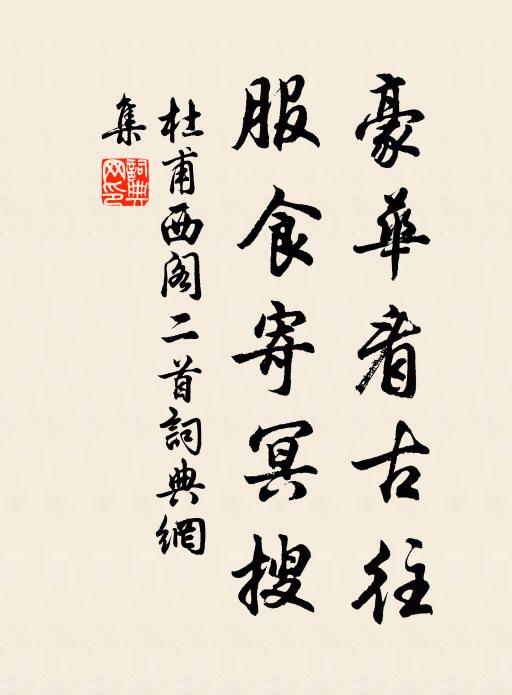 豪華看古往
服食寄冥搜
杜甫西閣二首詞典網
集
詞典網印